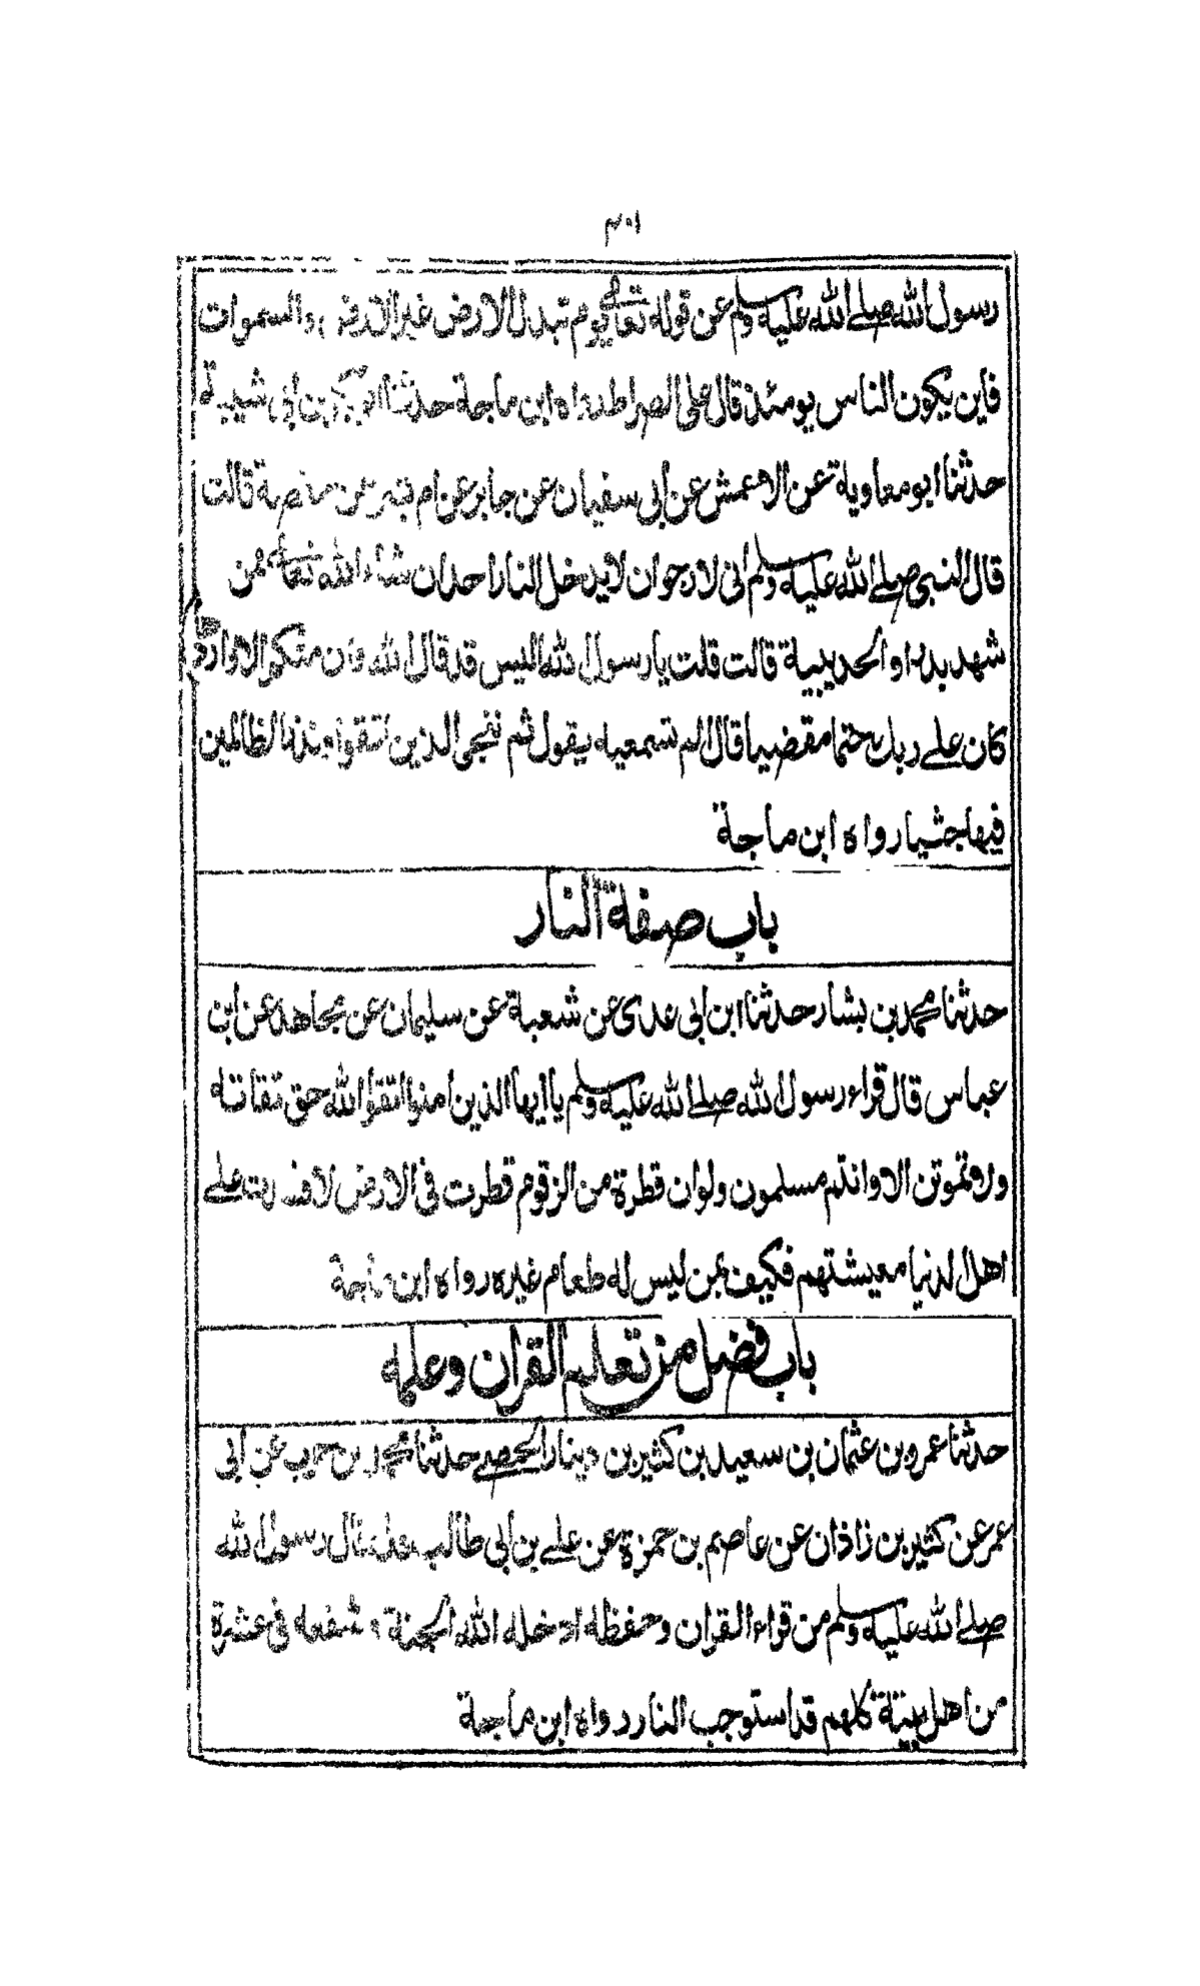 ٣٠١
رسول الله صلے الله عليه وسلم عن قوله تعالى يوم تبدل الارض غير الارض والسموات
فاين يكون الناس يومئذ قال على الصراط رواه ابن ماجة حدثنا ابوبكر بن ابى شيبة
حدثنا ابو معاوية عن الاعمش عن ابى سفيان عن جابر عن ام مبشر عن حفصة قالت
قال النبى صلے الله عليه وسلم انى لارجوان لايدخل النار احدان شاء الله تعالى ممن
شهد بدرا والحديبية قالت قلت يارسول الله اليس قد قال الله وان منكم الاواردها
كان علے ربك حتما مقضيا قال الم تسمعيه يقول ثم ننجى الذين اتقوا ونذر الظالمين
فيها جثيا رواه ابن ماجة
باب صفة النار
حدثنا محمد بن بشار حدثنا ابن ابى عدى عن شعبة عن سليمان عن مجاهد عن ابن
عباس قال قراء رسول الله صلے الله عليه وسلم يا ايها الذين امنوا اتقوا الله حق تقاته
ولا تموتن الا وانتم مسلمون ولوان قطرة من الزقوم قطرت فى الارض لافسدت علے
اهل الدنيا معيشتهم فكيف بمن ليس له طعام غيره رواه ابن ماجة
باب فضل من تعلم القران وعلمه
حدثنا عمرو بن عثمان بن سعيد بن كثير بن دينار الحمصے حدثنا محمد بن حرب عن ابى
عمر عن كثير بن زاذان عن عاصم بن حمزة عن علے بن ابى طالب قال رسول الله
صلے الله عليه وسلم من قراء القران وحفظه ادخله الله الجنة وشفعه فى عشرة
من اهل بيتة كلهم قد استوجب النار رواه ابن ماجة